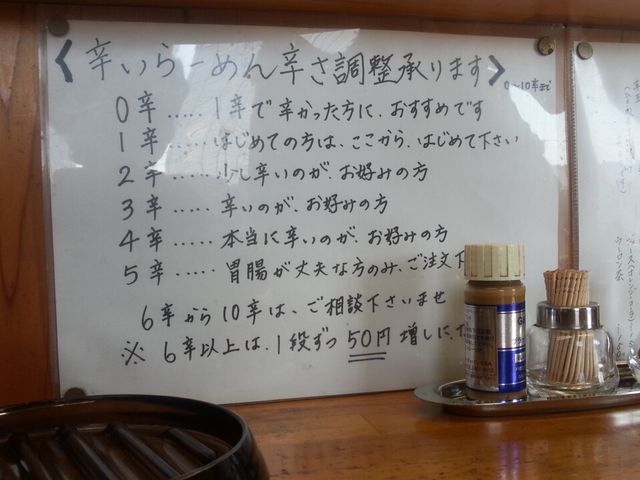 <辛いらーめん辛さ調整承ります>
0〜10辛まで
0辛.....1辛で辛かった方に、おすすめです
1辛.....はじめての方は、ここから、はじめて下さい
2辛.....少し辛いのが、お好みの方
3辛.....辛いのが、お好みの方
4辛.....本当に辛いのが、お好みの方
5辛.....胃腸が丈夫な方のみ、ご注文下
6辛から10辛は、ご相談下さいませ
※ 6辛以上は、1段ずつ50円増しに、て